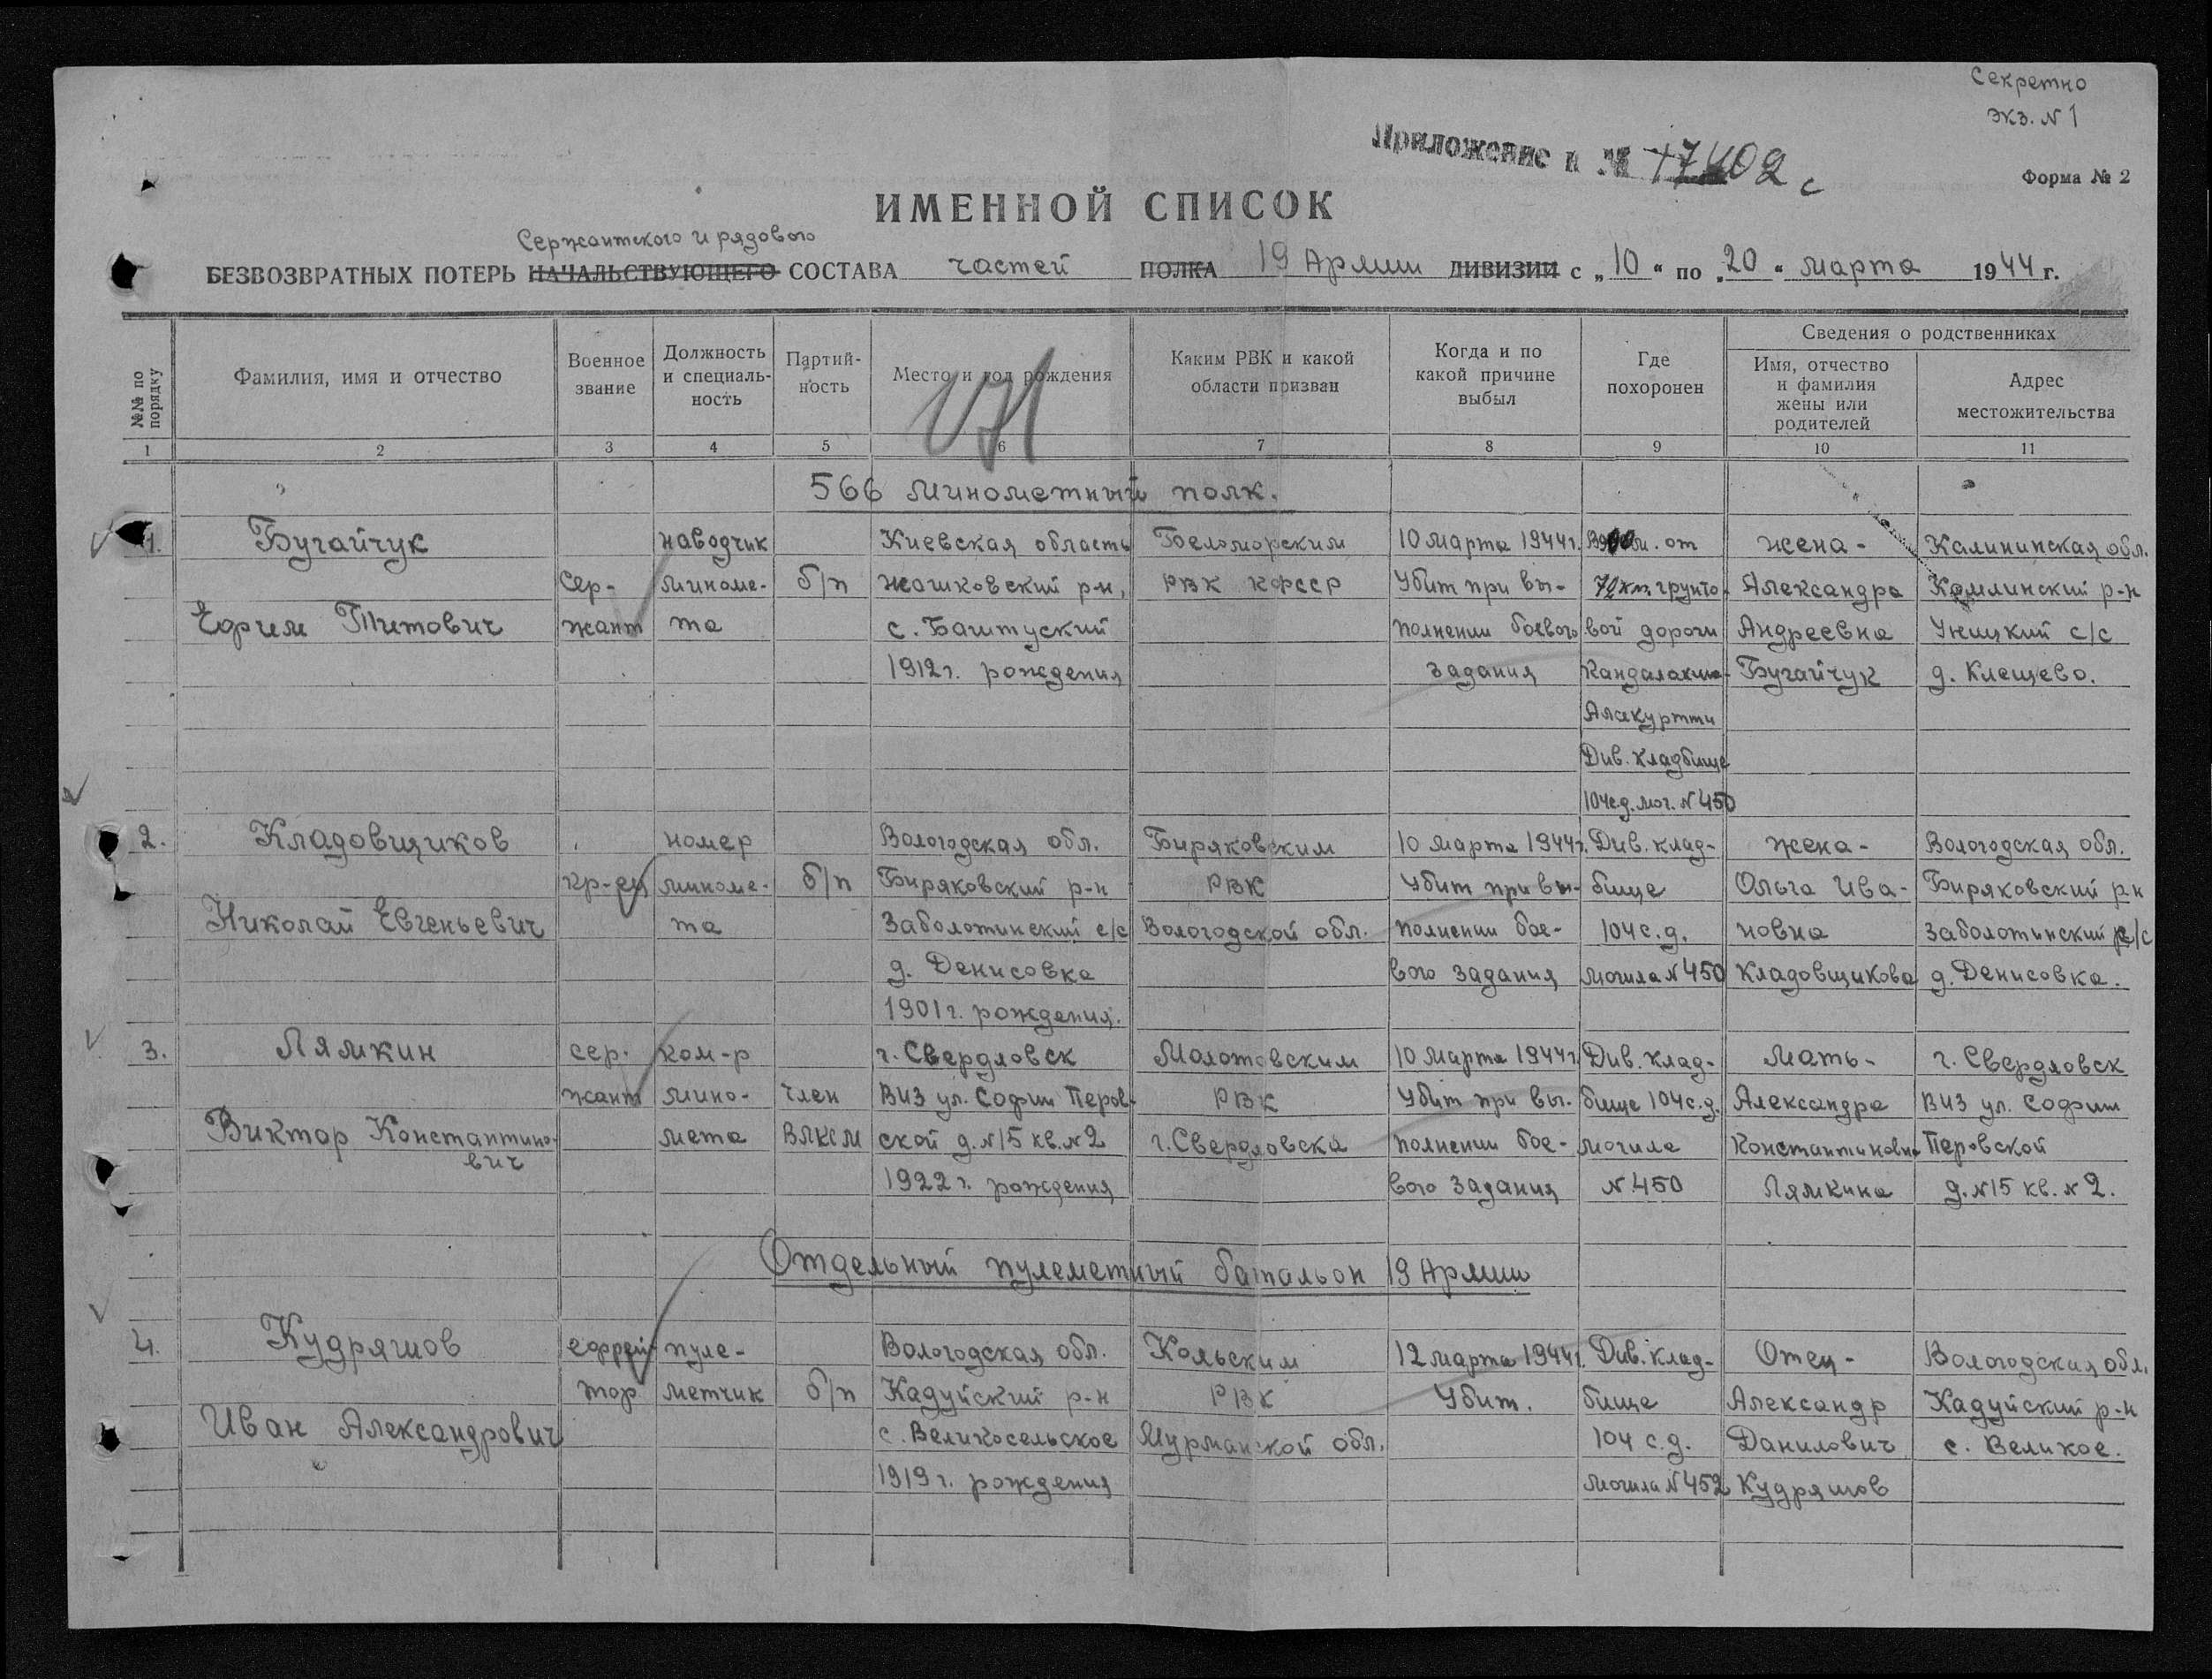 Секретно
экз. N 1
Приложение к № 17402 с
Форма № 2
ИМЕННОЙ СПИСОК
Сержантского и рядового
БЕЗВОЗВРАТНЫХ ПОТЕРЬ НАЧАЛЬСТВУЮЩЕГО СОСТАВА частей ПОЛКА 19 Армии ДИВИЗИИ с „10" по „20" марта 1944 г.
№№ по порядку
Фамилия, имя и отчество
Военное
звание
Должность
и специаль-
ность
Партий-
ность
Место и год рождения
Каким РВК и какой
области призван
Когда и по
какой причине
выбыл
Где
похоронен
Сведения о родственниках
Имя, отчество
и фамилия
жены или
родителей
Адрес
местожительства
171
1 2 3 4 5 6 7 8 9 10 11
566 минометный полк.
1. Бугайчук наводчик Киевская область Беломорским 10 марта 1944 г. от жена - Калининская обл.
Сер- миноме- б/п Жашковский р-н, РВК КФССР Убит при вы- грунто- Александра р-н
Ефрем Титович жант та с. Баштуский полнении боевого вой дороги Андреевна Уницкий с/с
1912 г. рождения задания Кандалакша- Бугайчук д. Клещево.
Алакуртти
Див. кладбище
104 с.д. мог. N 450
2. Кладовщиков номер Вологодская обл. Биряковским 10 марта 1944 г. Див. клад- жена - Вологодская обл.
кр-ец миноме- б/п Биряковский р-н РВК Убит при вы- бище Ольга Ива- Биряковский р-н
Николай Евгеньевич та Заболотинский с/с Вологодской обл. полнении бое- 104 с.д. новна Заболотинский с/с
д. Денисовка вого задания могила N 450 Кладовщикова д. Денисовка.
1901 г. рождения.
3. Лямкин сер- ком-р г. Свердловск Молотовским 10 марта 1944 г. Див. клад- Мать - г. Свердловск
жант мино- член ВИЗ ул. Софии Перов- РВК Убит при вы- бище 104 с.д. Александра ВИЗ ул. Софии
Виктор Константино- мета ВЛКСМ ской д. N 15 кв. N 2 г. Свердловска полнении бое- могила Константиновна Перовской
вич
1922 г. рождения вого задания N 450 Лямкина д. N 15 кв. N 2.
Отдельный пулеметный батальон 19 Армии
4. Кудряшов ефрей- пуле- Вологодская обл. Кольским 12 марта 1944 г. Див. клад- Отец - Вологодская обл.
тор метчик б/п Кадуйский р-н РВК Убит. бище Александр Кадуйский р-н
Иван Александрович с. Великосельское Мурманской обл. 104 с.д. Данилович с. Великое.
1919 г. рождения могила N 452 Кудряшов